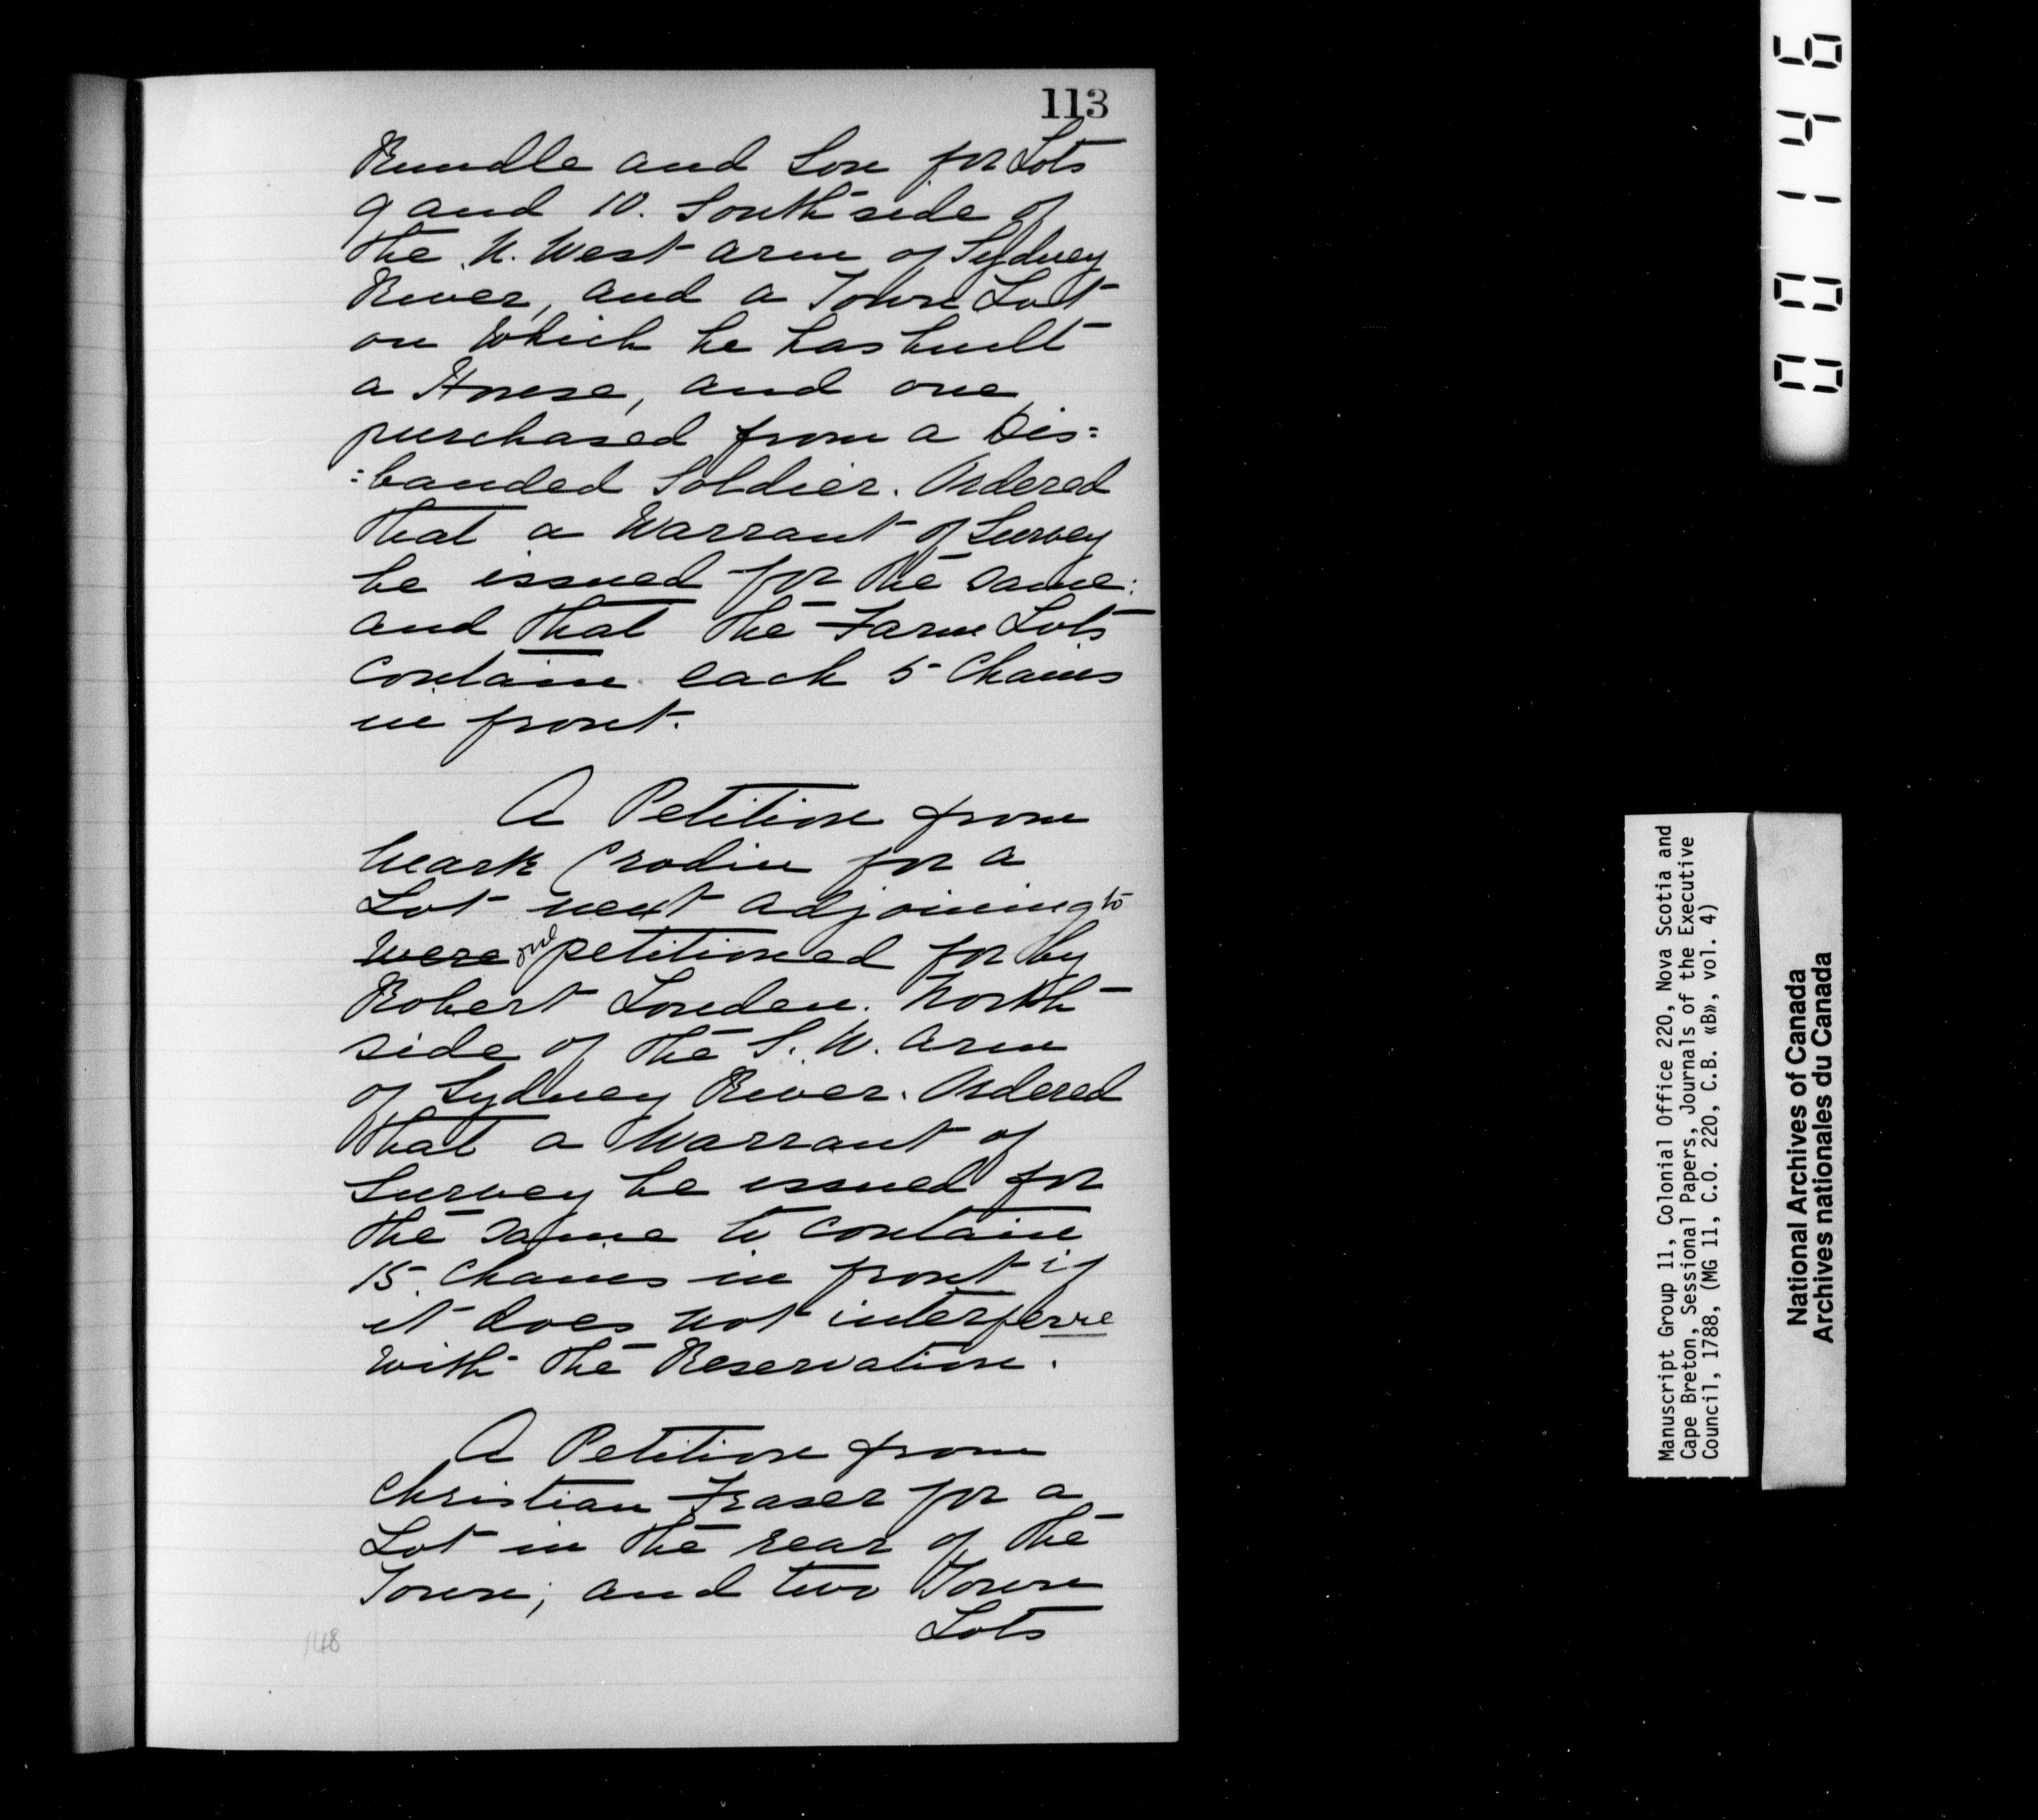 113
Rundle and Son for Lots
9 and 10. South side of
the N. West arm of Sydney
River, and a Town Lot
on which he has built
a House, and one
purchased from a Dis=
=banded Soldier. Ordered
that a Warrant of Survey
be issued for the same:
and that the Farm Lots
contain each 5 Chains
in front.
A Petition from
Mark Crodin for a
Lot next adjoining to
were one petitioned for by
Robert Louden. North
side of the S. W. arm
of Sydney River. Ordered
that a Warrant of
Survey be issued for
the same to contain
15 Chains in front if
it does not interferre
with the Reservation.
A Petition from
Christian Fraser for a
Lot in the rear of the
Town; and two Town
Lots
148
000146
Manuscript Group 11, Colonial Office 220, Nova Scotia and
Cape Breton, Sessional Papers, Journals of the Executive
Council, 1788, (MG 11, C.O. 220, C.B. «B», vol. 4)
National Archives of Canada
Archives nationales du Canada